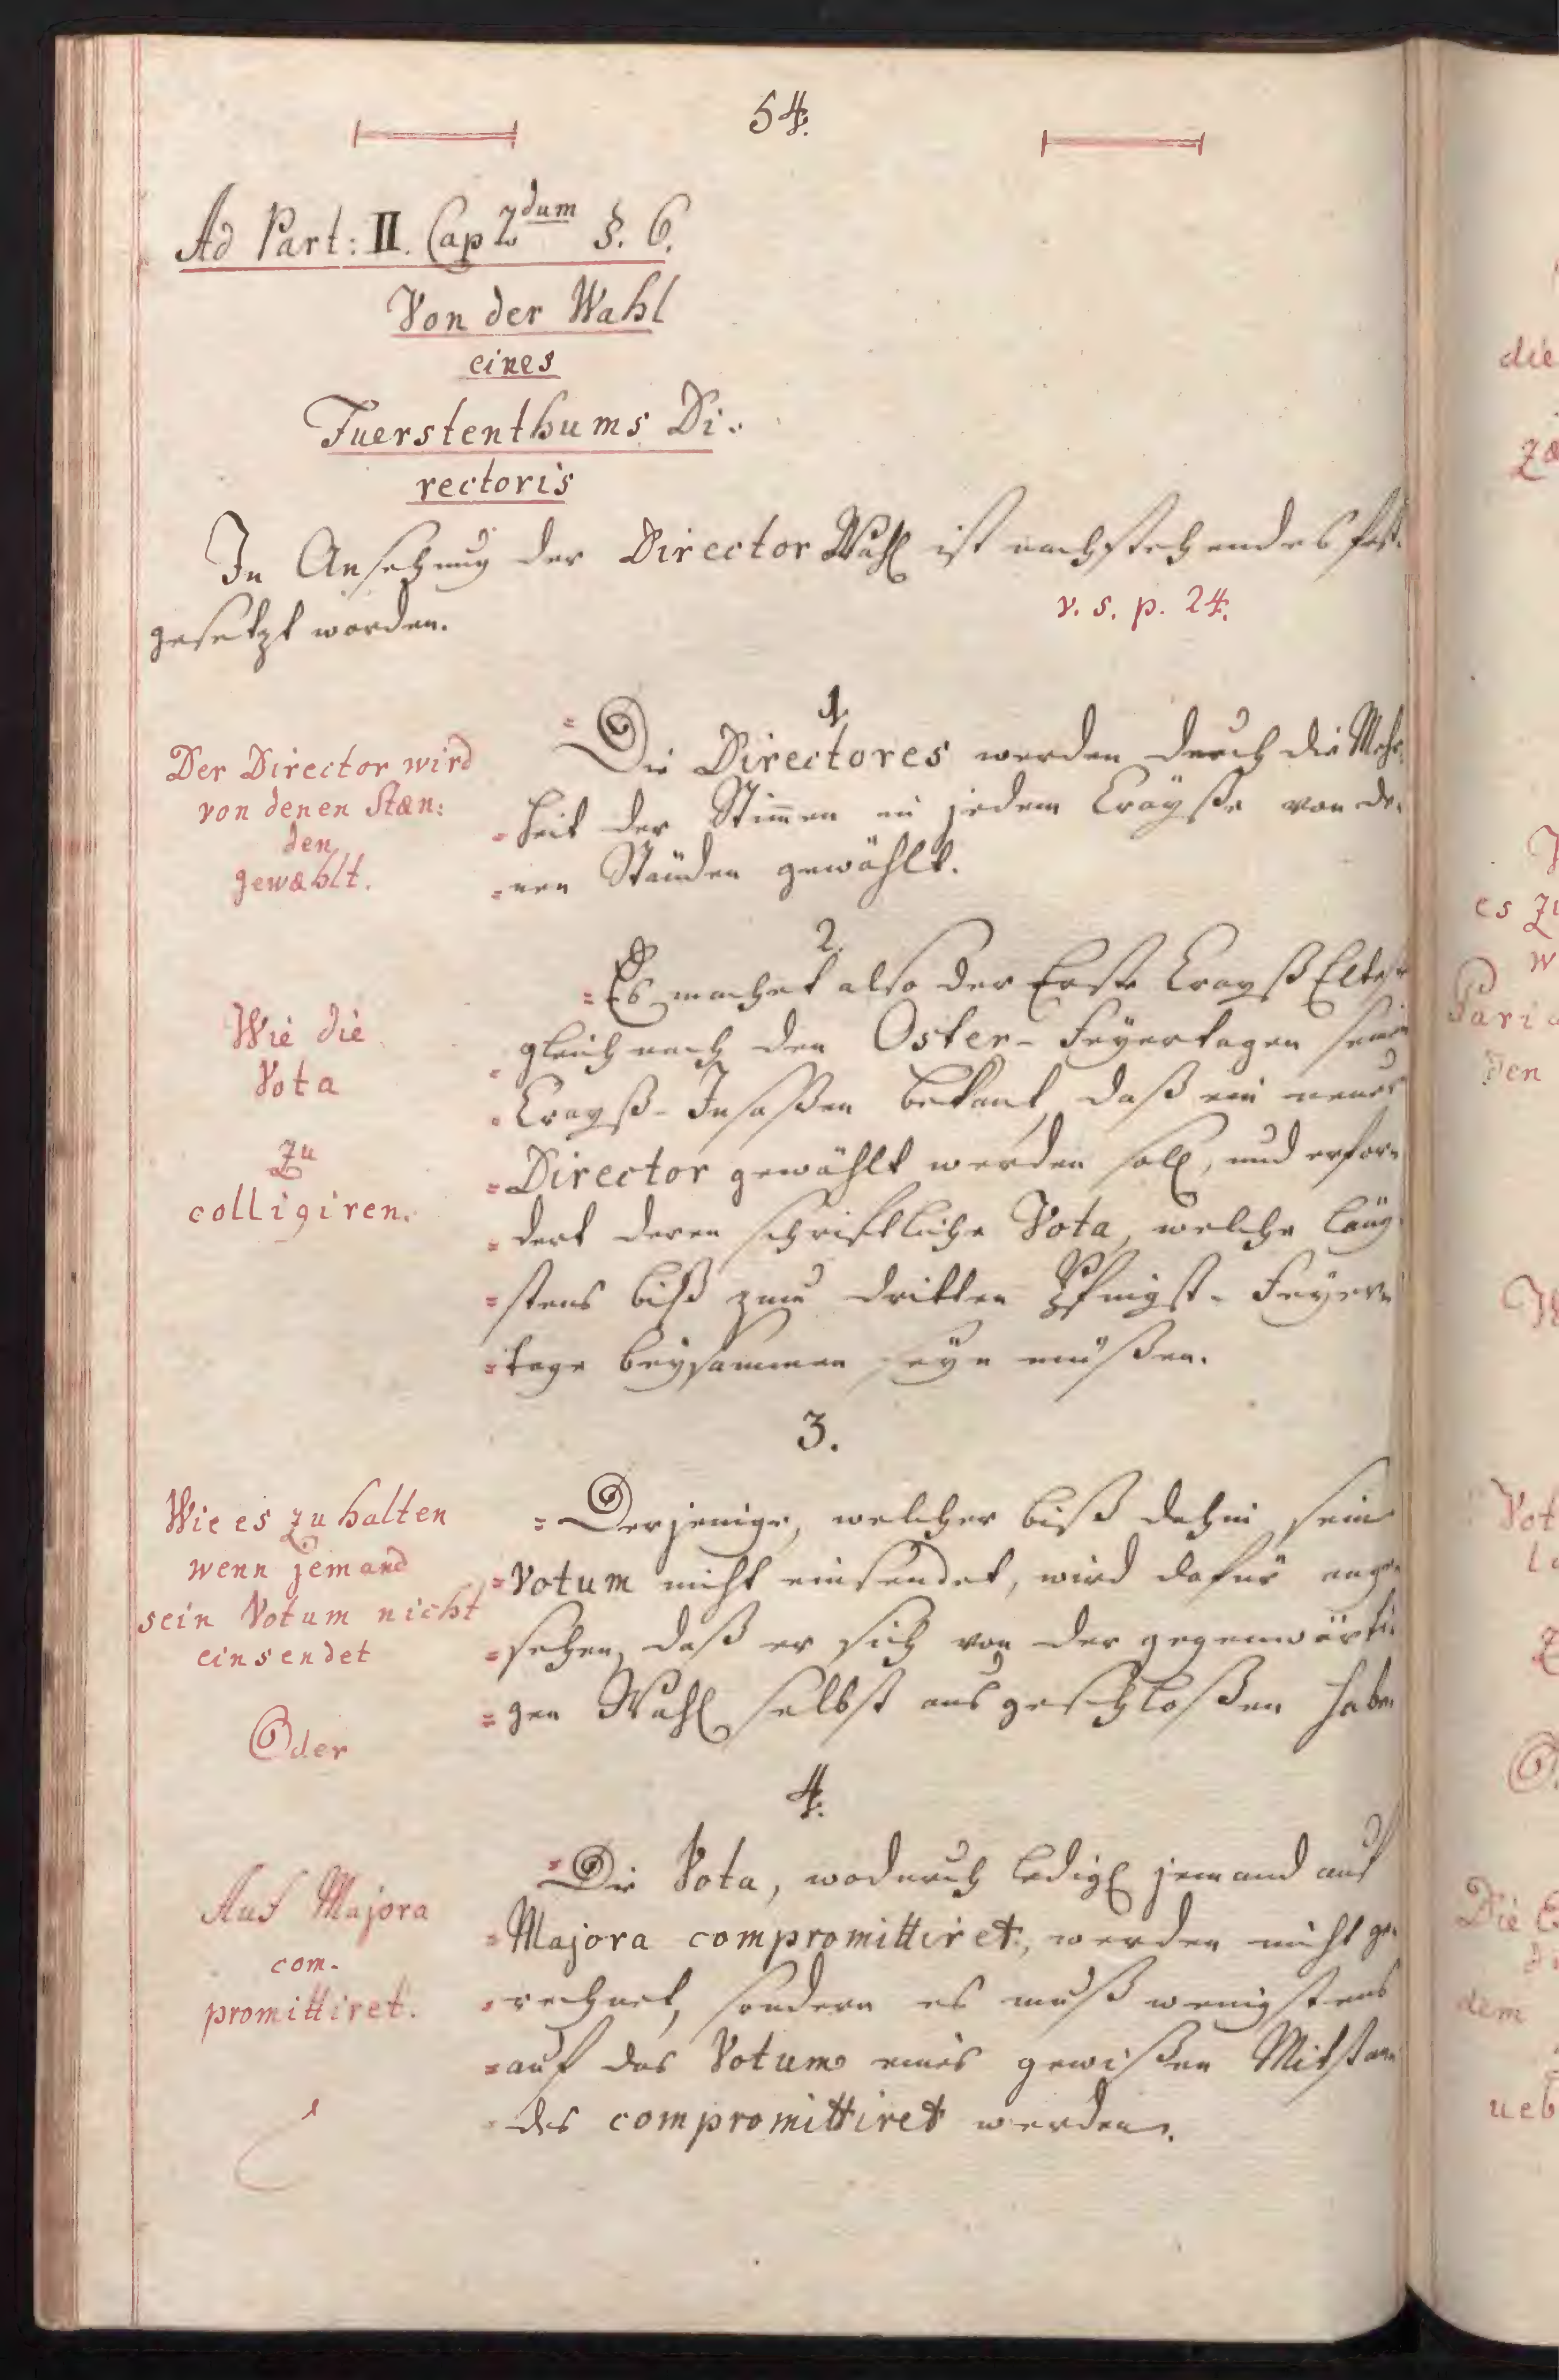 54.
Ad Part: II. Cap 2dum §. 6.
Von der Wahl
eines
Fuerstenthums Di-
rectoris
In Ansehung der Director Wahl ist nachstehendes fest-
gesetzt worden.
v. s. p. 24.
1.
Der Director wird
von denen Stæn:
den
gewæhlt.
Die Directores werden durch die Mehr-
heit der Stim̄en in jedem Crayße von de-
nen Ständen gewählt.
2.
Wie die
Vota
zu
colligiren.
Es machet also der Erste Crayß Elteste
gleich nach den Oster-Feyertagen seinen
Crayß-Insaßen bekant, daß ein neuer
Director gewählt werden soll, und erfor-
dert deren schriftliche Vota, welche läng-
stens biß zum dritten Pfingst-Feyer-
tage beysammen seyn müßen.
3.
Wie es zu halten
wenn jemand
sein Votum nicht
einsendet
Oder
Derjenige, welcher biß dahin sein
Votum nicht einsendet, wird dafür ange-
sehen, daß er sich von der gegenwärti-
gen Wahl selbst ausgeschloßen habe
4.
Auf Majora
com-
promittiret.
Die Vota, wodurch ledigl jemand auf
Majora compromittiret, werden nicht ge-
rechnet, sondern es muß wenigstens
auf das Votum eines gewißen Mitstan-
des compromittiret werden.
die
es zu
den
Die
dem
ueb